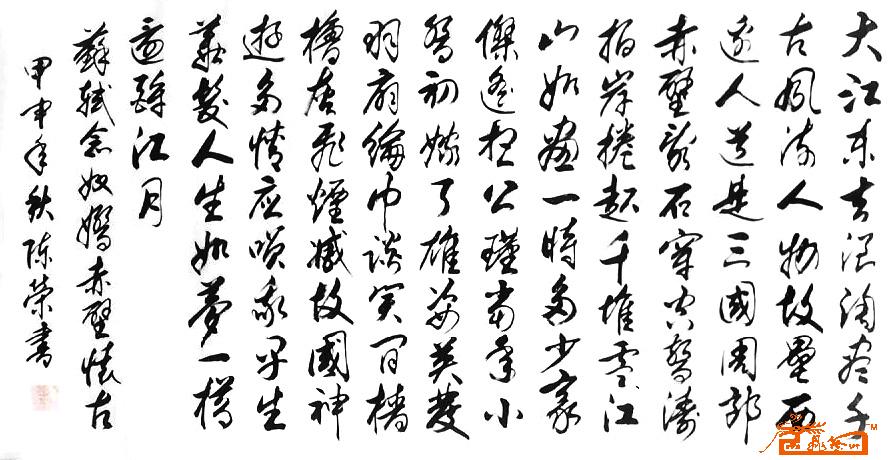 大江东去浪淘尽千
古风流人物故垒西
边人道是三國周郎
赤壁乱石穿空驚涛
拍岸捲起千堆雪江
山如画一時多少豪
傑遥想公瑾当年小
乔初嫁了雄姿英发
羽扇綸巾谈笑间樯
橹灰飞煙滅故國神
遊多情应笑我早生
華髮人生如夢一樽
還酹江月
蘇轼念奴嬌赤壁懷古
甲申年秋陈荣書